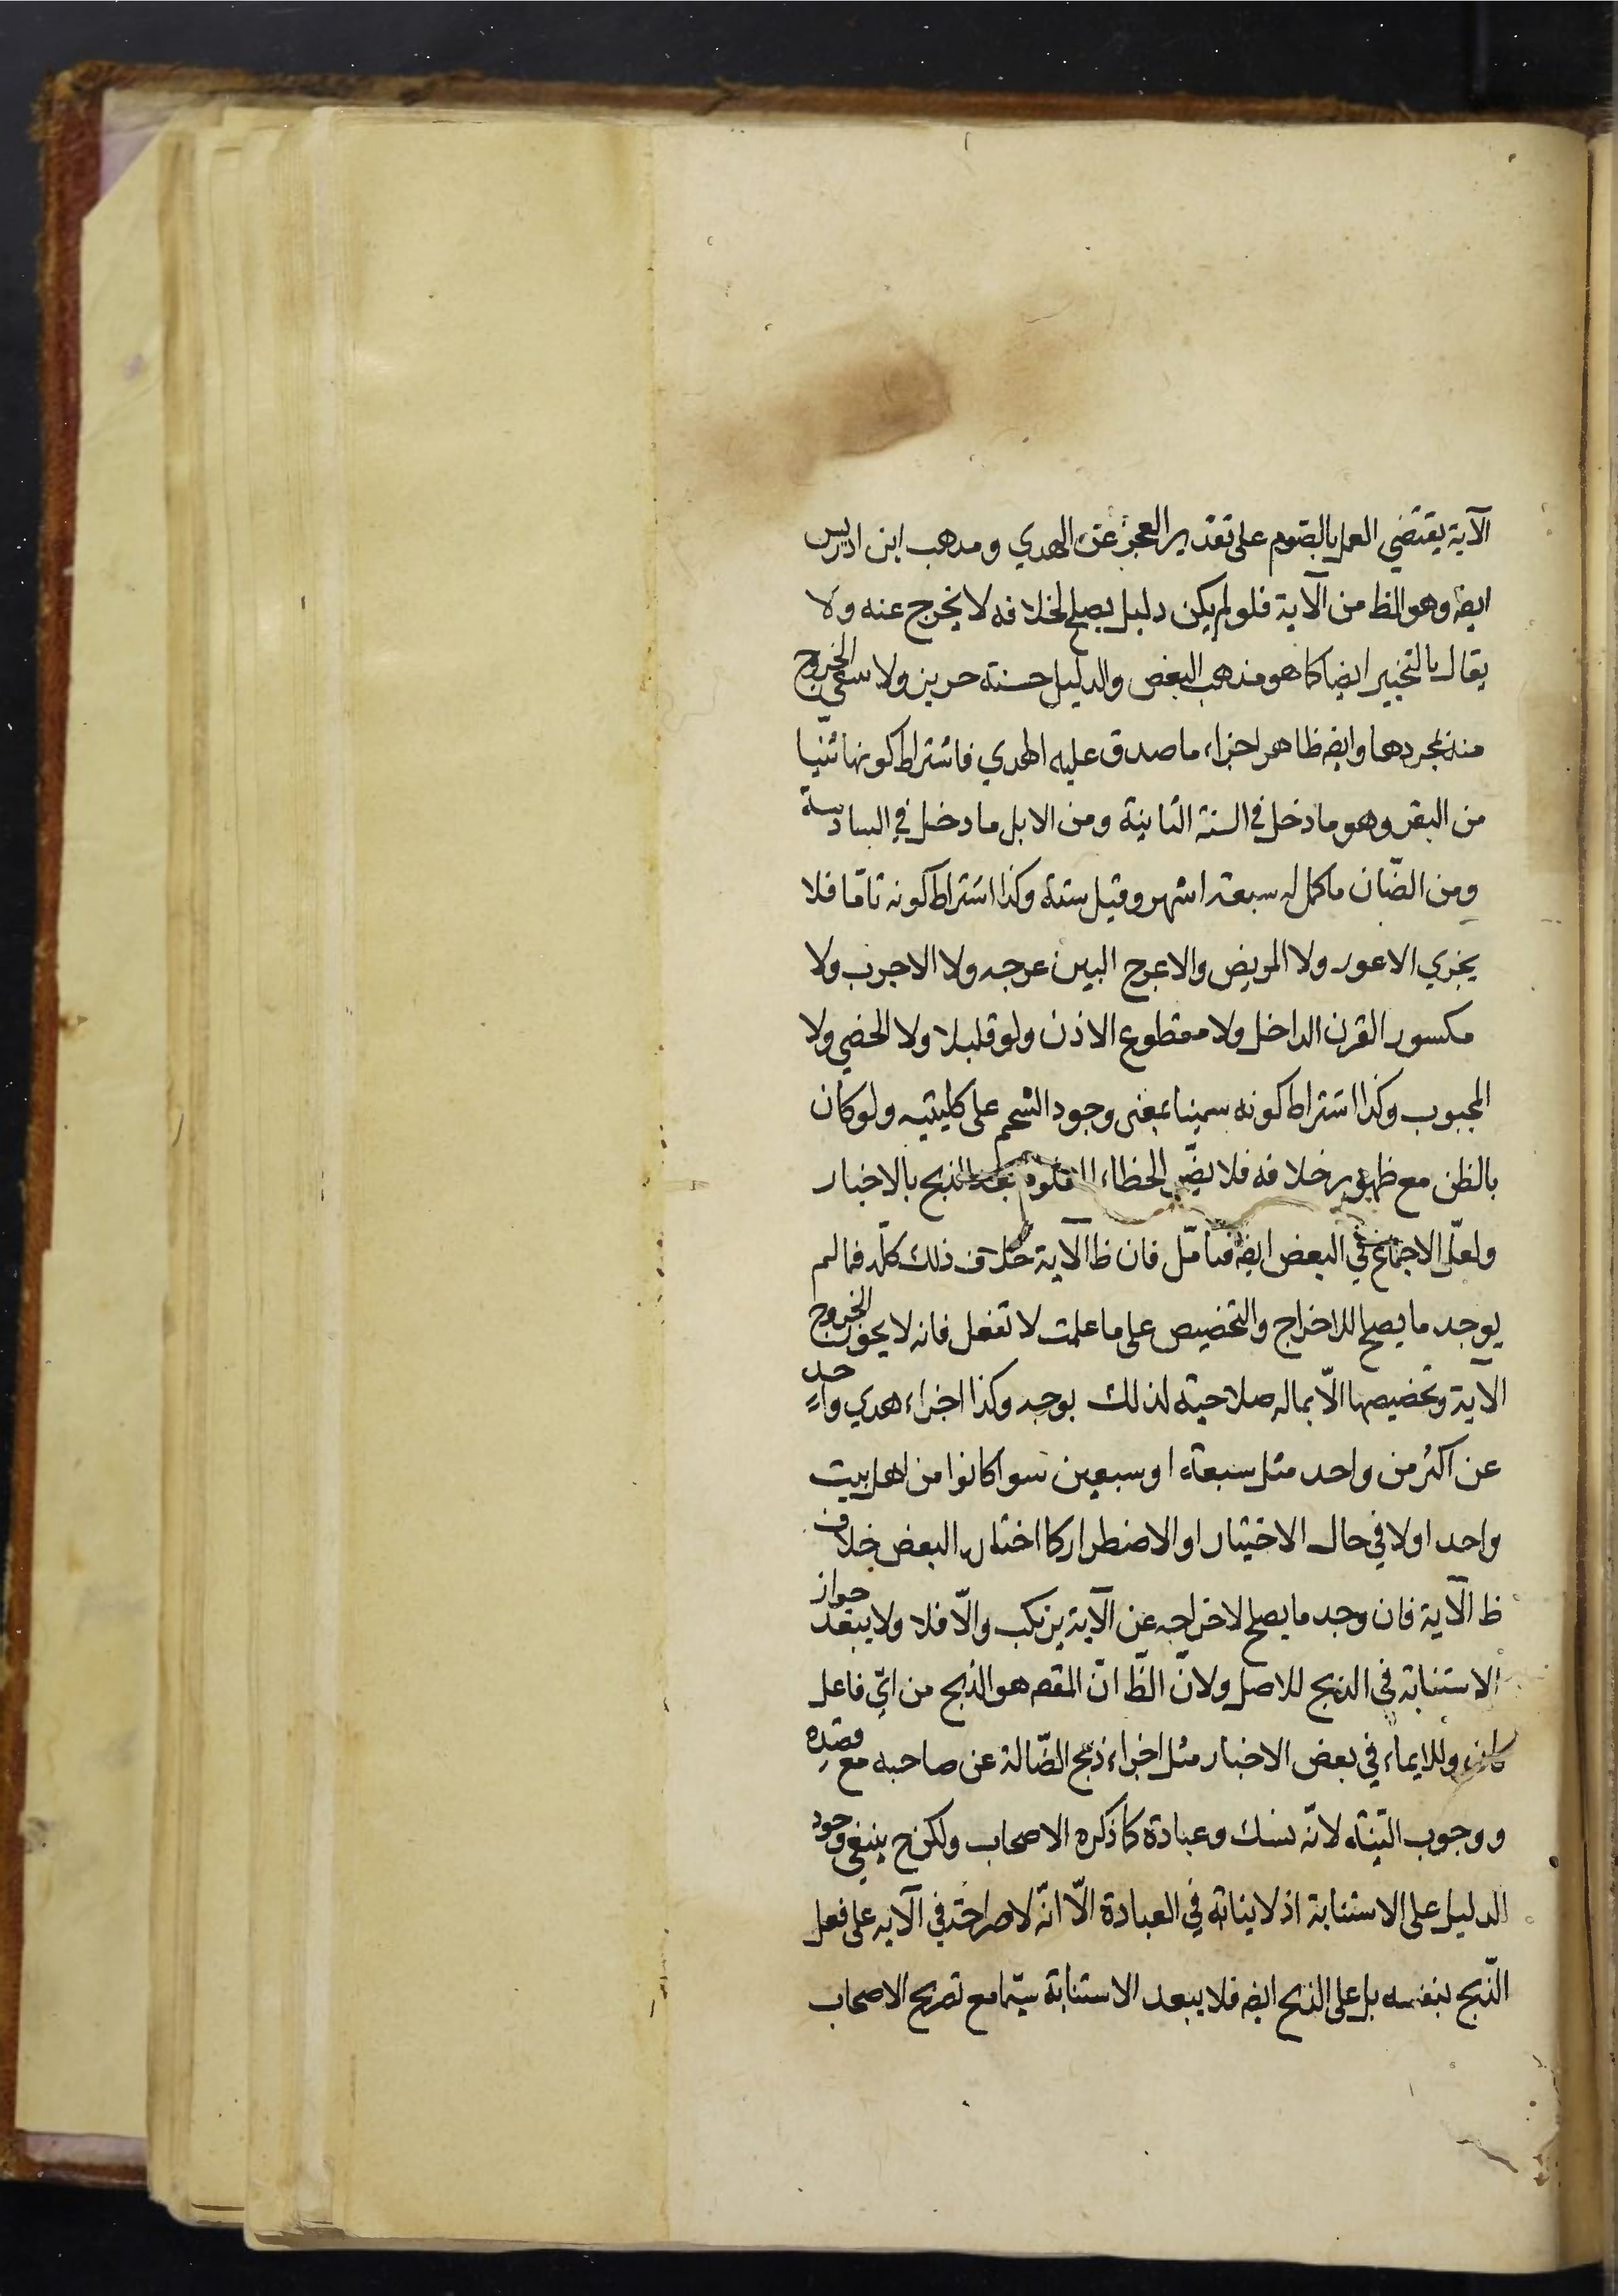 الآية يقتضي العمل بالصوم على تقدير العجز عن الهدي ومذهب ابن ادريس
ايضه وهو الظ من الآية فلو لم يكن دليل يصلح لخلافه لا يخرج عنه ولا
يقال بالتخيير ايضا كما هو مذهب البعض والدليل حسنة حريز ولا الخروج
منه بمجردها وايضه ظاهر اجزاء ما صدق عليه الهدي فاشتراط كونها ثنيا
من البقر وهو ما دخل في السنة الثانية ومن الابل ما دخل في السادسة
ومن الضّان ما كمل له سبعة اشهر وقيل ستة وكذا اشتراط كونه تامّا فلا
يجزي الاعور ولا المريض والاعرج البين عرجه ولا الاجرب ولا
مكسور القرن الداخل ولا مقطوع الاذن ولو قليلا ولا الخصي ولا
المجبوب وكذا اشتراط كونه سمينا بمعنى وجود الشحم على كليتيه ولو كان
بالظن مع ظهور خلافه فلا يضّر الخطاء بعد الذبح بالاخبار
ولعلّ الاجماع في البعض ايضه فتامّل فان ظ الآية خلاف ذلك كلّه فما لم
يوجد ما يصلح للاخراج والتخصيص على ما علمت لا تفعل فانه لا يجوز الخروج
الآية وتخصيصها الاّ بما له صلاحية لذلك بوجه وكذا اجزاء هدي واحد
عن اكثر من واحد مثل سبعة او سبعين سوا كانوا من اهل بيت
واحد اولا في حال الاختيار او الاضطرار كما اختاره البعض خلاف
ظ الآية فان وجد ما يصلح لاخراجه عن الآية يرتكب والاّ فلا ولا يبعد جواز
الاستنابة في الذبح للاصل ولانّ الظّ انّ المقصه هو الذبح من ايّ فاعل
كان وللايماء في بعض الاخبار مثل اجزاء ذبح الضّالة عن صاحبه مع قصده
ووجوب النيّة لانّه نسك وعبادة كما ذكره الاصحاب ولكن ح ينبغي وجود
الدليل على الاستنابة اذ لا ينابة في العبادة الاّ انّه لا صراحة في الآية على فعل
الذّبح بنفسه بل على الذبح ايضه فلا يبعد الاستنابة سيّما مع تصريح الاصحاب